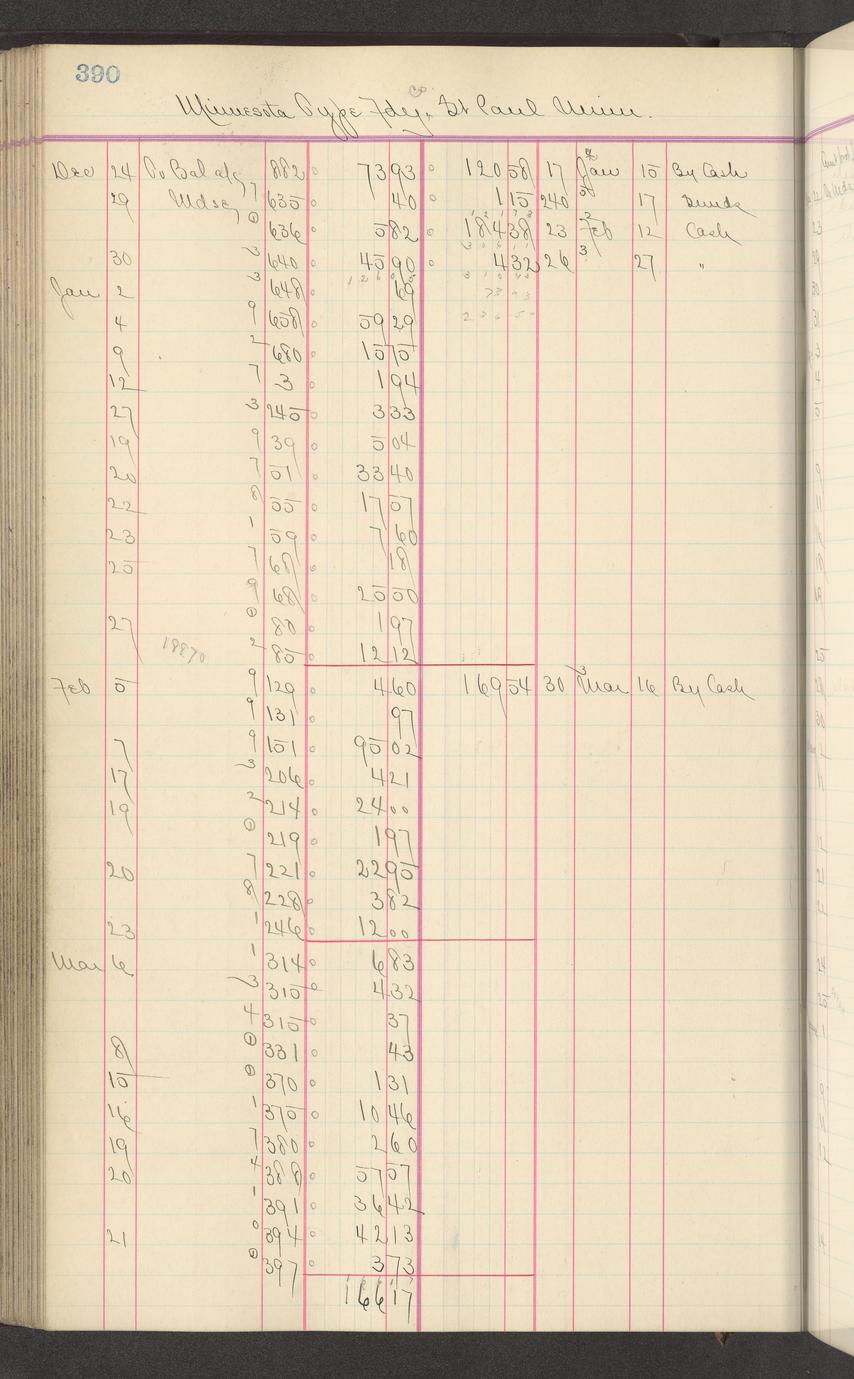 390
Co.
Minnesota Type Fdy, St Paul Minn.
Dec 24 To Bal 882 73 93 120 58 17 Jan 15 By Cash
29 Mdse, 7 635 40 1 15 240 17
0 636 5 82 184 38 23 Feb 12 Cash
30 3 640 45 90 4 32 26 27 "
Jan 2 3 648 69 73 93
4 9 658 59 29 236 50
9 2 680 15 75
12 7 3 1 94
27 3 245 3 33
19 9 39 5 04
20 7 51 33 40
22 8 55 17 57
23 1 59 7 60
25 7 68 18
9 68 25 50
27 0 80 1 97
2 85 12 12
Feb 5 9 129 4 60 169 54 30 Mar 16 By Cash
9 131 97
7 9 151 95 02
17 3 206 4 21
19 2 214 24 00
0 219 1 97
20 7 221 22 95
8 228 3 82
23 1 246 12 00
Mar 6 1 314 6 83
3 315 4 32
4 315 37
8 0 331 43
15 0 370 1 31
16 1 375 10 46
19 7 380 2 60
20 4 388 57 57
1 391 36 42
21 0 394 42 13
0 397 3 73
166 17